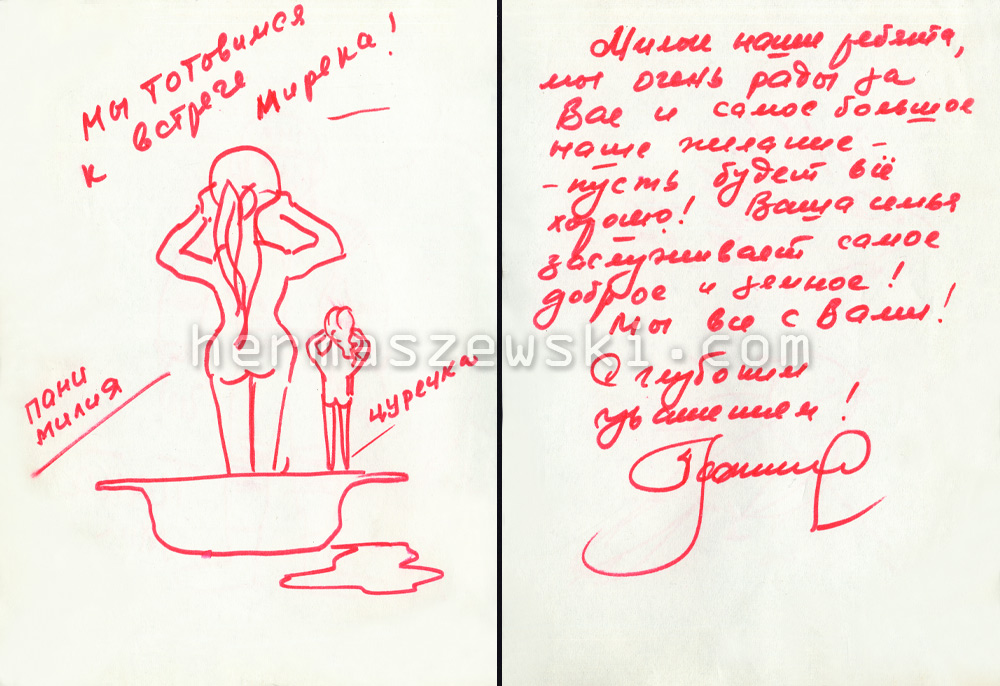 мы готовимся
к встрече
Мирека!
пани
милия
цуречка
Милые наши ребята,
мы очень рады за
Вас и самое большое
наше желание –
– пусть будет всё
хорошо! Ваша семья
заслуживает самое
доброе и земное!
Мы все с Вами!
С глубоким
уважением!
hermaszewski.com